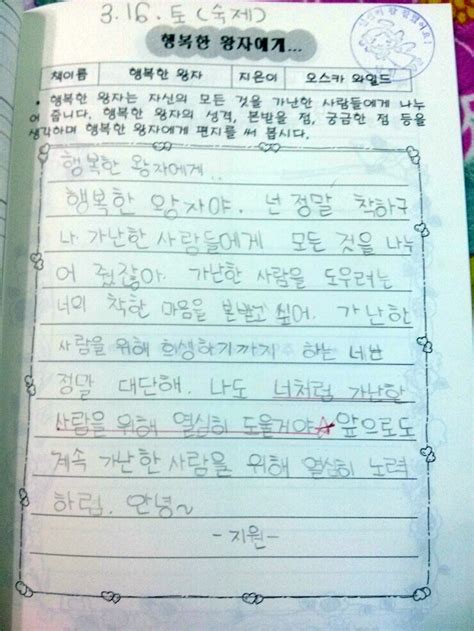 3.16.토(숙제)
행복한 왕자에게...
책이름 행복한 왕자 지은이 오스카 와일드
• 행복한 왕자는 자신의 모든 것을 가난한 사람들에게 나누
어 줍니다. 행복한 왕자의 성격, 본받을 점, 궁금한 점 등을
생각하며 행복한 왕자에게 편지를 써 봅시다.
행복한 왕자에게..
행복한 왕자야. 넌 정말 착하구
나. 가난한 사람들에게 모든 것을 나누
어 줬잖아. 가난한 사람을 도우려는
너의 착한 마음을 본받고 싶어. 가난한
사람을 위해 희생하기까지 하는 네가
정말 대단해. 나도 너처럼 가난한
사람을 위해 열심히 도울거야 앞으로도
계속 가난한 사람을 위해 열심히 노력
하렴. 안녕~
-지원-